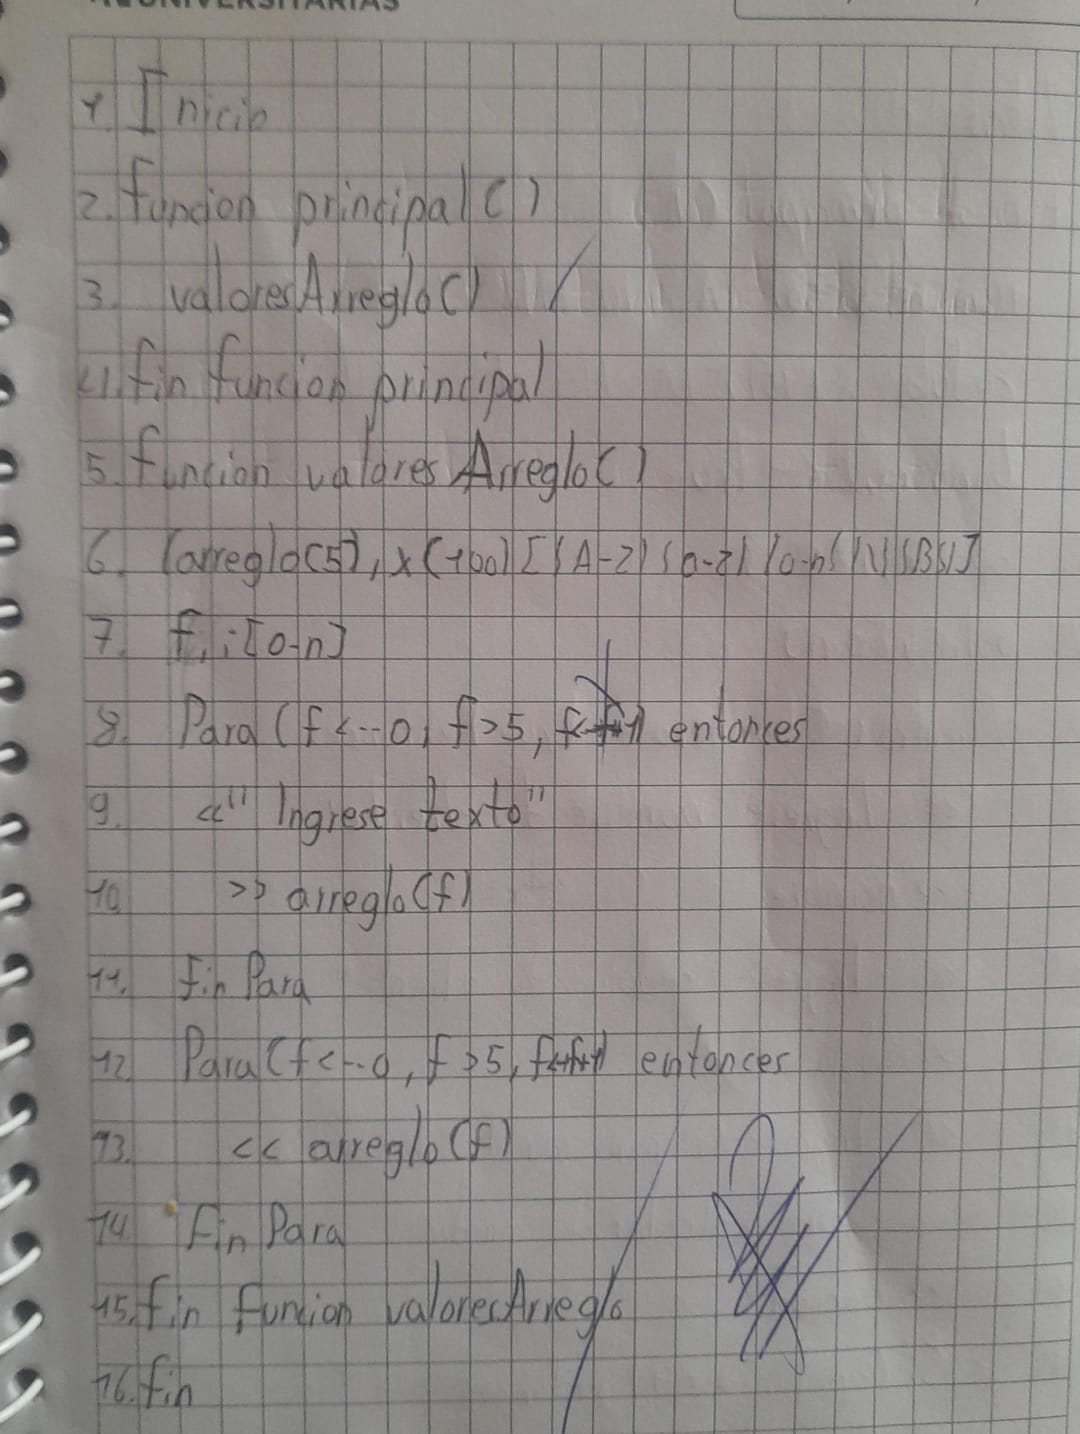 UNIVERSITARIAS
1. Inicio
2. funcion principal ()
3. valoresArreglo()
4. fin funcion principal
5. funcion valores Arreglo()
6. (arreglo(5), x(100) [(A-Z) (a-z) (0-n)
7. f, i [0-n]
8. Para (f <-- 0, f >5, f<-f+1) entonces
9. <<" Ingrese texto"
10. >> arreglo(f)
11. Fin Para
12. Para (f <-- 0, f >5, f<-f+1) entonces
13. << arreglo (f)
14. Fin Para
15. fin funcion valoresArreglo
16. fin